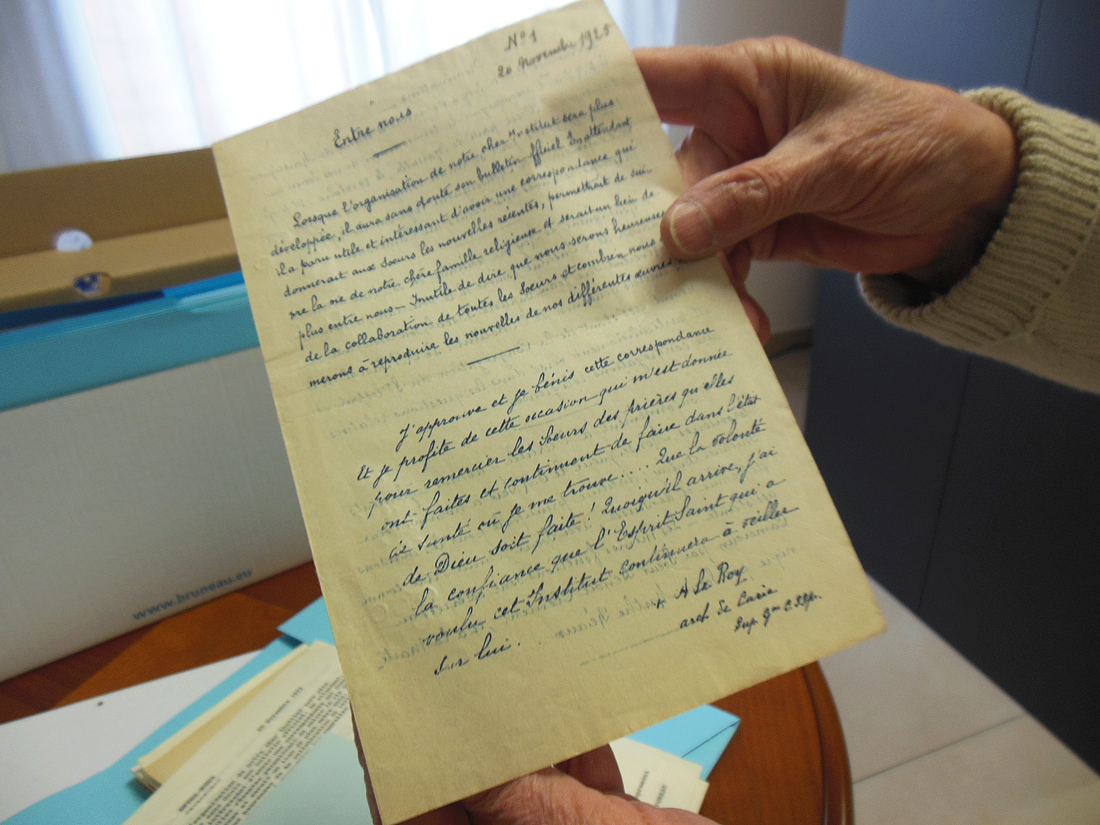 Nº1
20 Novembre 1925
Entre nous
Lorsque l'organisation de notre cher Institut sera plus
développée, il aura sans doute son bulletin officiel. En attendant
il a paru utile et intéressant d'avoir une correspondance qui
donnerait aux Sœurs les nouvelles récentes, permettrait de sui-
vre la vie de notre chère famille religieuse et serait un lien de
plus entre nous. Inutile de dire que nous serons heureuses
de la collaboration de toutes les Sœurs et combien nous
merons à reproduire les nouvelles de nos différentes œuvres.
J'approuve et je bénis cette correspondance
Et je profite de cette occasion qui m'est donnée
pour remercier les Sœurs des prières qu'elles
ont faites et continuent de faire dans l'état
de santé où je me trouve.... Que la volonté
de Dieu soit faite ! Quoiqu'il arrive, j'ai
la confiance que l'Esprit Saint qui a
voulu cet Institut continuera à veiller
sur lui.
A Le Roy
arch. de Carie
Sup. Gᵃˡ
www.bruneau.eu